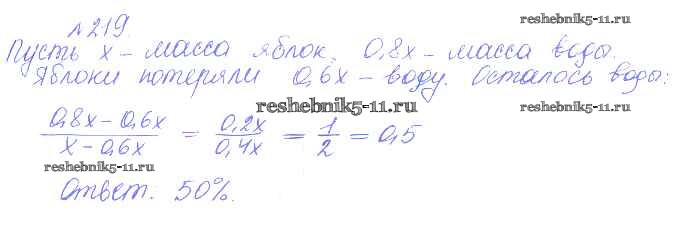 №219.
reshebnik5-11.ru
Пусть x - масса яблок, 0,8x - масса воды.
Яблоки потеряли 0,6x - воду. Осталось воды:
reshebnik5-11.ru
reshebnik5-11.ru
(0,8x - 0,6x)/(x - 0,6x) = 0,2x/0,4x = 1/2 = 0,5
reshebnik5-11.ru
Ответ: 50%.
reshebnik5-11.ru